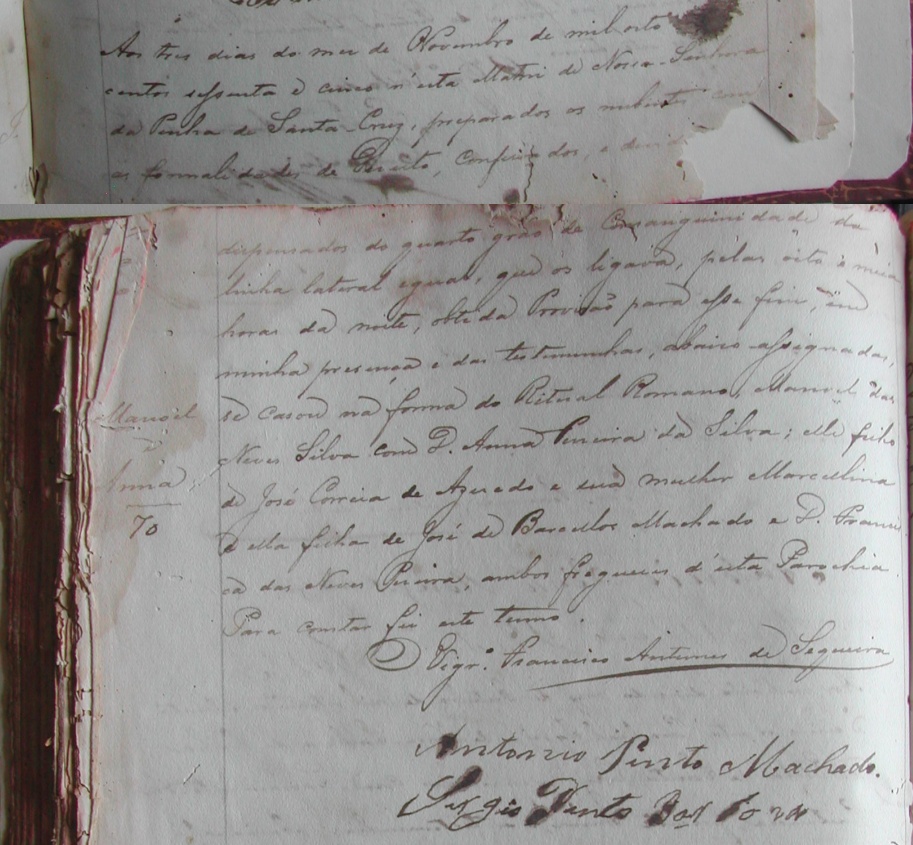 Aos tres dias do mez de Novembro de mil oito
centos essenta e cinco n'esta Matri de Nossa Senhora
da Penha de Santa Cruz, preparados os nubentes com
as formalidades de Direito, confessados, e
dispensados do quarto gráo de Consanguinidade da
linha lateral egual, que os ligava, pelas oito e meia
horas da noite, obtida Provisão para esse fim, em
minha presença e das testemunhas, abaixo assignadas,
se casou na forma do Ritual Romano, Manoel das
Neves Silva com D. Anna Pereira da Silva; elle filho
de José Correia de Azeredo e sua mulher Marcellina
e ella filha de José de Barcellos Machado e D. Francis
ca das Neves Pereira, ambos freguezes d'esta Parochia.
Para constar fiz este termo.
Vigr.º Francisco Antunes de Sequeira
Antonio Pinto Machado.
Sergio Pinto
Manoel
e
Anna
70